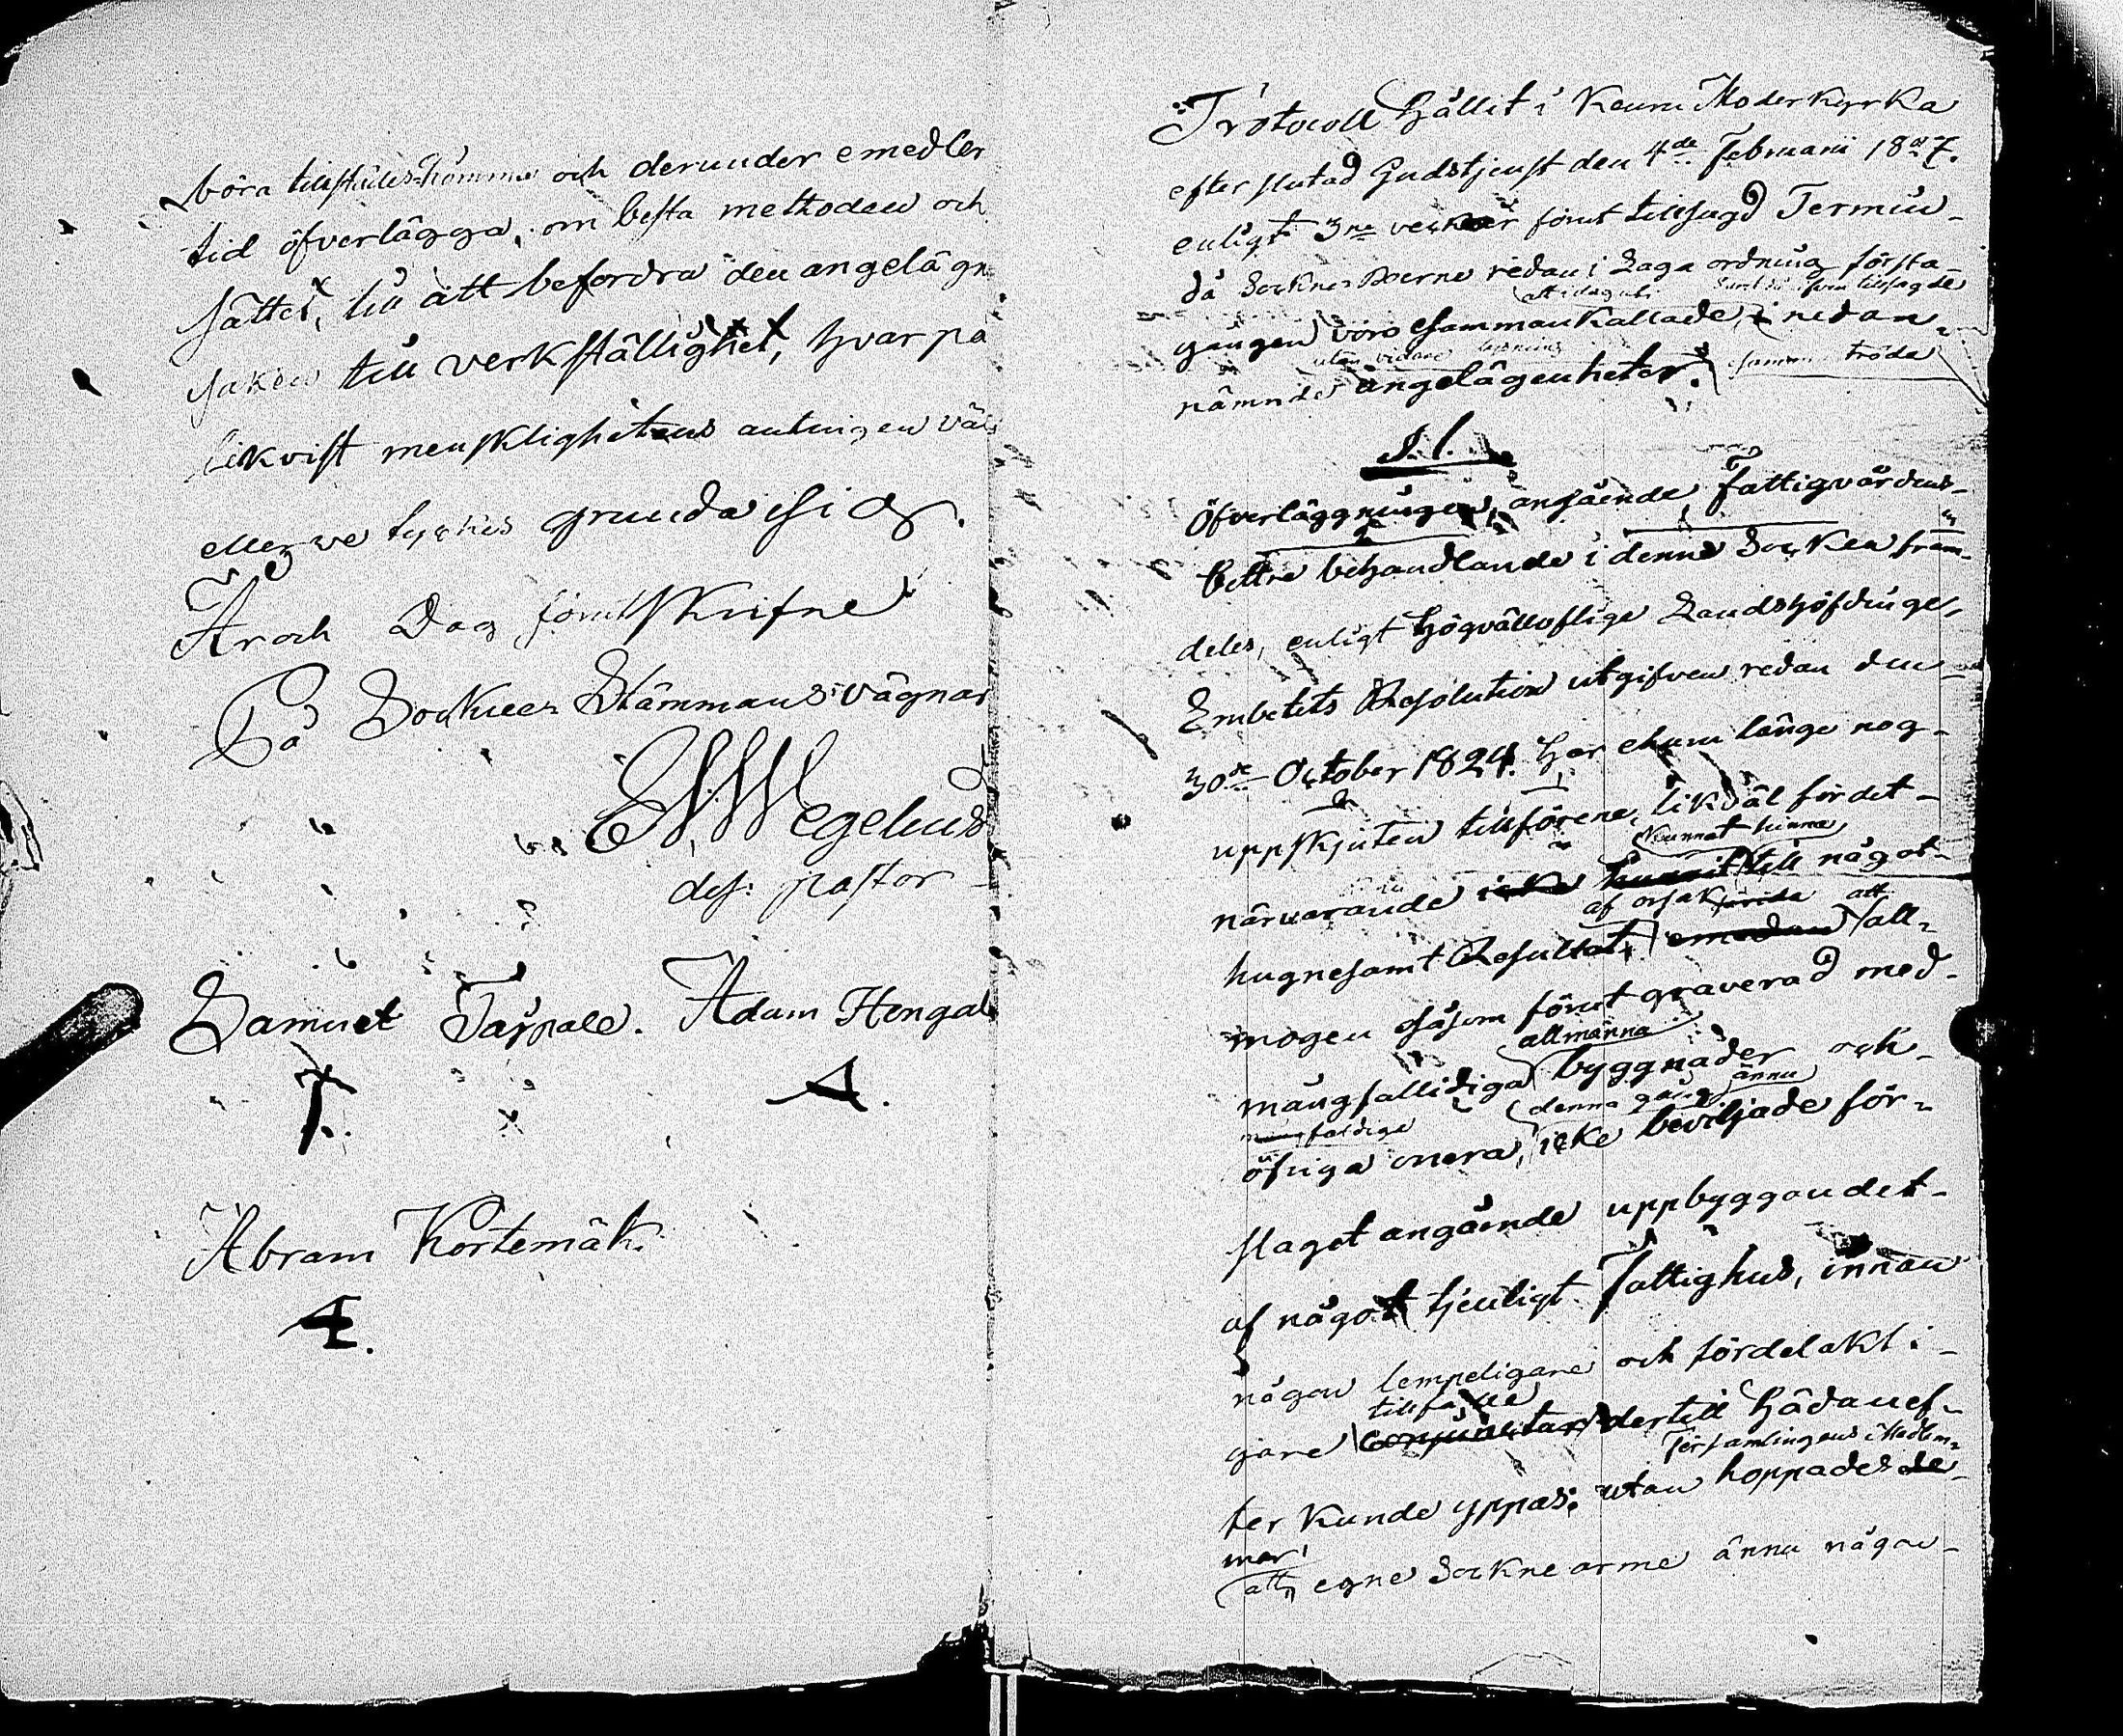 böra tillstädeskomma och derunder emedler
tid öfverlägga, om bästa methoden och
sättet, till att befordra den angelägn
saken till verkställighet, hvarpå
likvist mensklighetens antingen väl
eller ve tyckes grunda sig.
År och Dag förutskrifne
På Sockne Stämmans vägnar
Wegelius
def: pastor
Samuel Tarpale. Adam Hengal
T. A.
Abram Kortemäk.
4.
Protocoll hållit i Keuru Moderkyrka
efter slutad Gudstjenst den 4de Februarii 1827.
enligt 3ne veckor förut tillsagd Termin
då Socknemänne redan i Laga ordning första
att idag
gången voro sammankallade, i nedan
utan vidare
nämnde angelägenheter. samman träda
§. 1.
Öfverläggningen, angående Fattigvårdens
bättre behandlande i denna Socken främ-
deles, enligt Högvälloflige Landshöfdinge
Embetets Resolution utgifven redan den
30de October 1824. har ehuru länge nog
uppskjuten tillförene, likväl för det
kunnat hinna
närvarande icke hunnit till något
af orsak att
hugnesamt Resultat, emedan all-
mogen såsom förut graverad med
allmänna
mångfalldiga byggnader och
denna gång ännu
mångfaldige
öfriga onera, icke beviljade för-
slaget angående uppbyggandet
af något tjenligt Fattighus, innan
någon lempeligare och fördelakti-
tillfälle
gare conjunctur dertill hädanef-
Församlingens Medlem-
ter kunde yppas; utan hoppades de
mar,
att egne Socknearme ännu någon